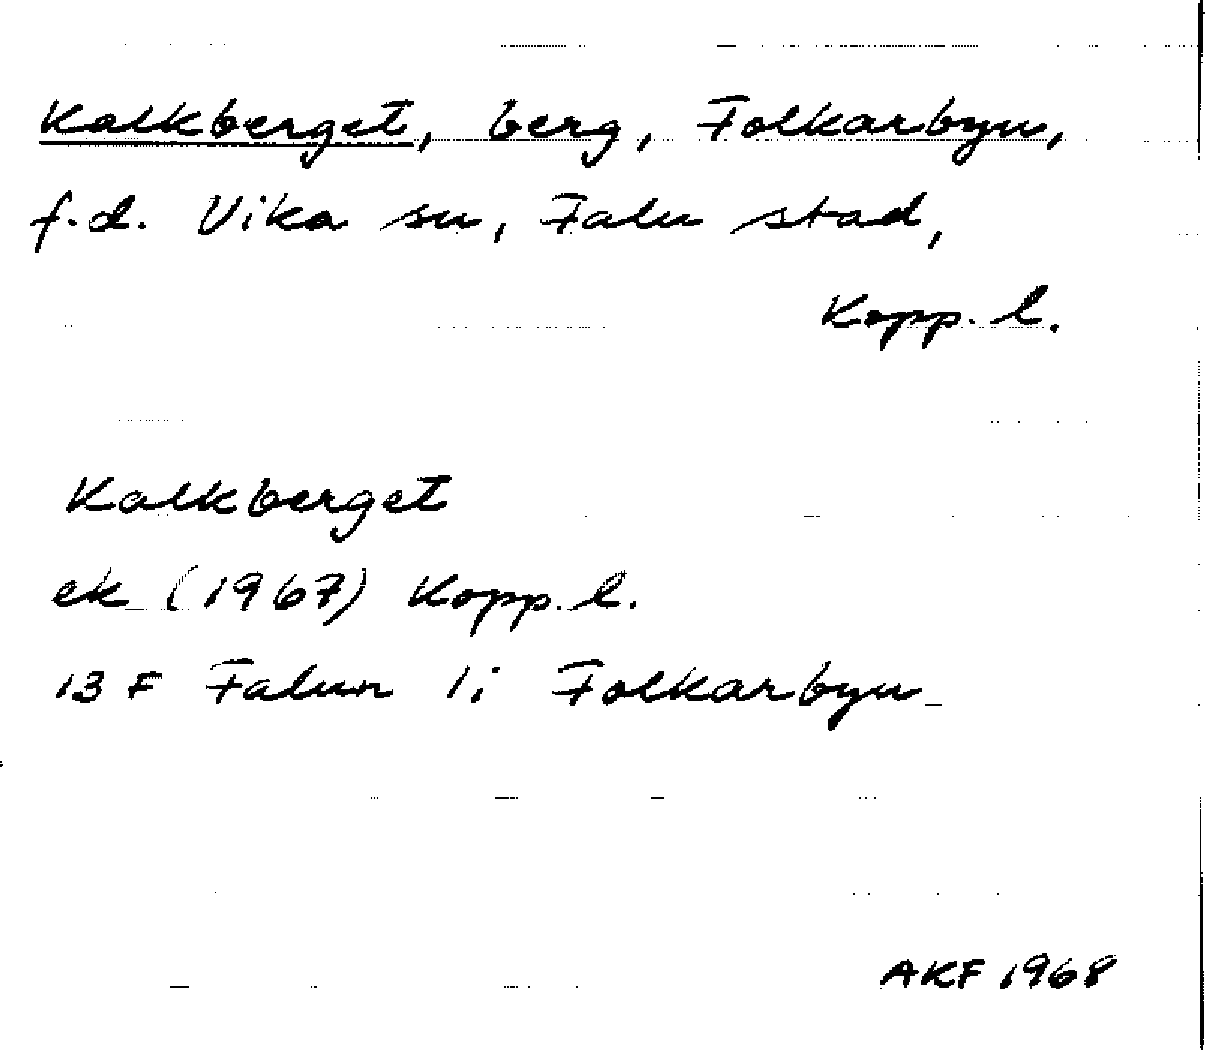 Kalkberget, berg, Folkarbyn,
f.d. Vika sn, Falu stad,
Kopp. l.
Kalkberget
ek (1967) Kopp. l.
13 F Falun 1 i Folkarbyn
AKF 1968